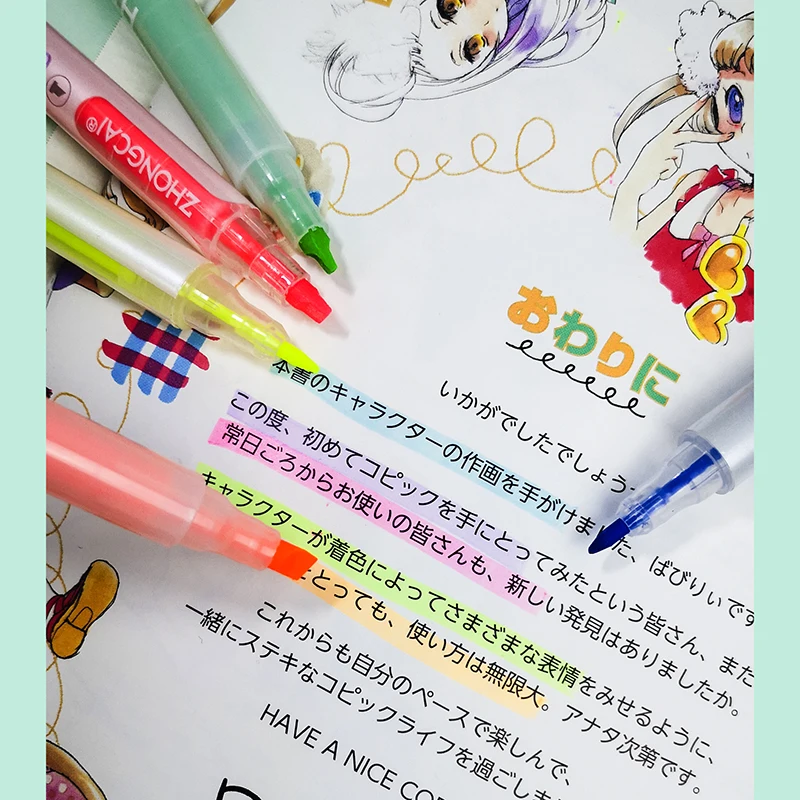 ZHONGCAI®
おわりに
いかがでしたでしょう
本書のキャラクターの作画を手がけました、ぱぴりぃです
この度、初めてコピックを手にとってみたという皆さん、また
常日ごろからお使いの皆さんも、新しい発見はありましたか。
キャラクターが着色によってさまざまな表情をみせるように、
とっても、使い方は無限大。アナタ次第です。
これからも自分のペースで楽しんで、
一緒にステキなコピックライフを過ごしま
HAVE A NICE COP